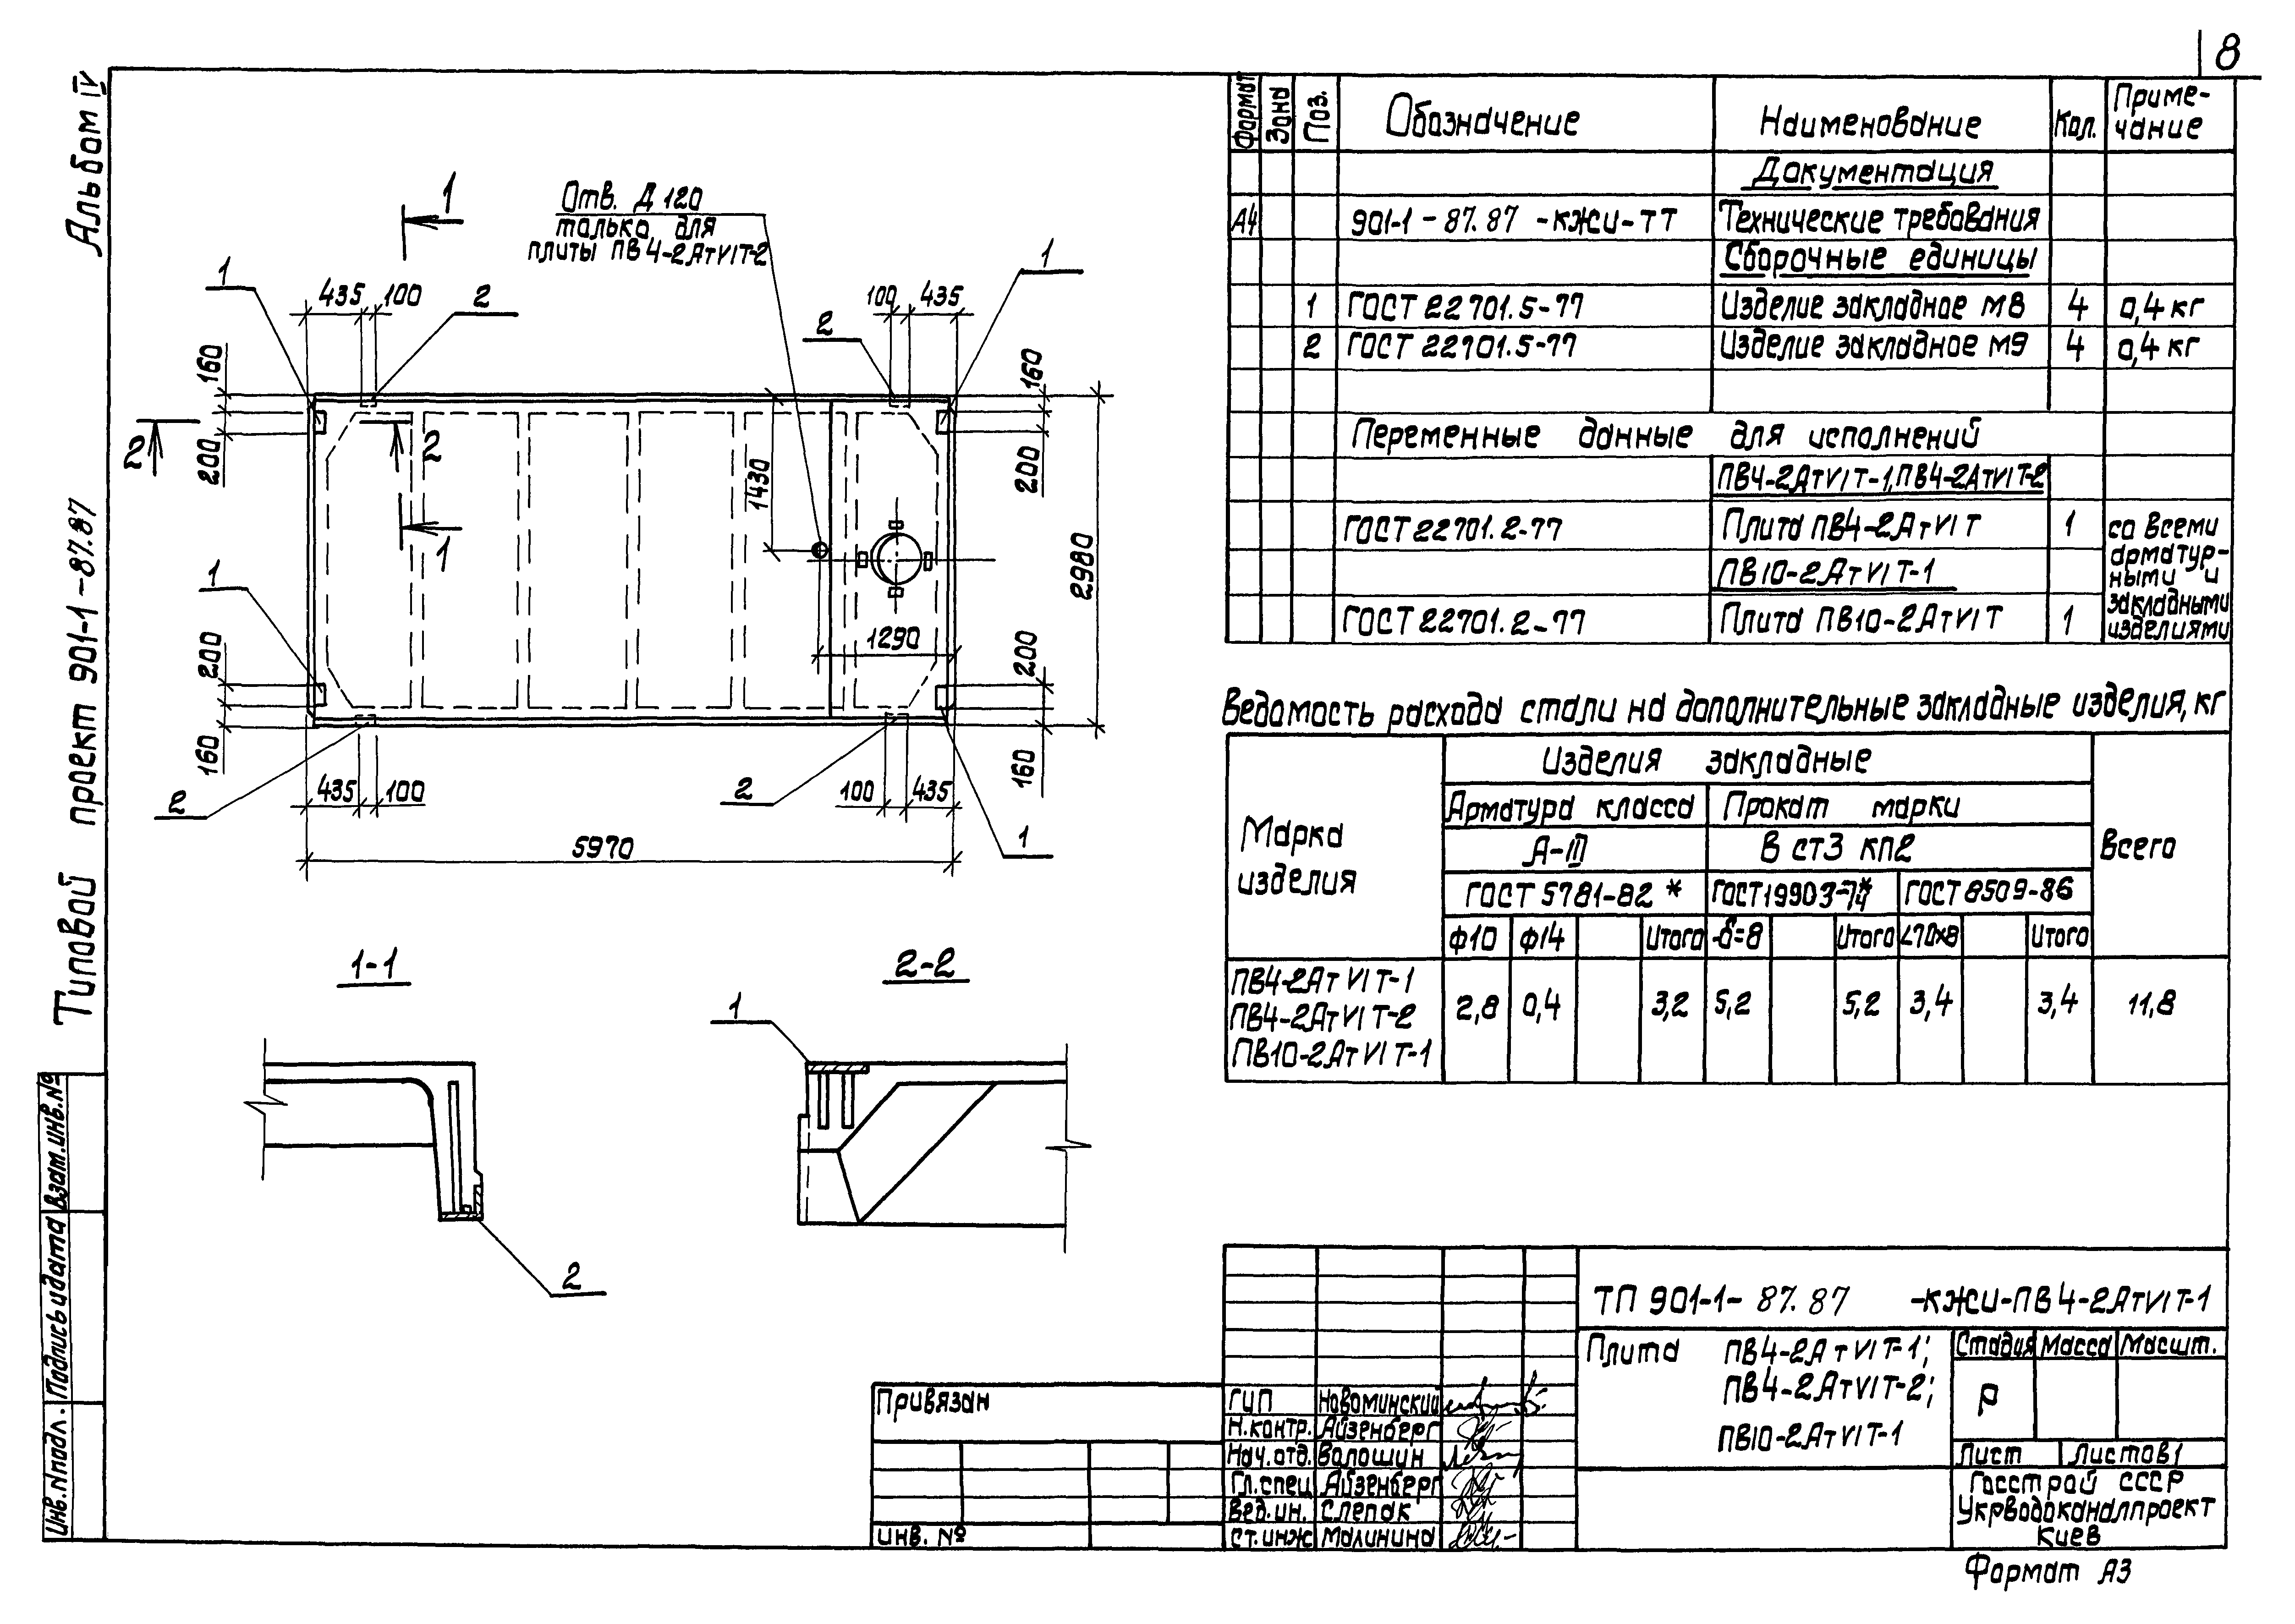 8
Альбом IV
Типовой проект 901-1-87.87
Инв. N подл.
Подпись и дата
Взам. инв. №
1
Отв. Д 120
только для
плиты ПВ4-2АтVIТ-2
1
1
435 100
2
100 435
2
160
160
200
200
2
2
1430
2980
1
1
1290
200
200
160
160
435 100
100 435
2
2
1
5970
1-1
2-2
1
2
Формат
Зона
Поз.
Обозначение
Наименование
Кол.
Приме-
чание
Документация
А4 901-1-87.87-КЖИ-ТТ Технические требования
Сборочные единицы
1 ГОСТ 22701.5-77 Изделие закладное М8 4 0,4 кг
2 ГОСТ 22701.5-77 Изделие закладное М9 4 0,4 кг
Переменные данные для исполнений
ПВ4-2АтVIТ-1, ПВ4-2АтVIТ-2
ГОСТ 22701.2-77 Плита ПВ4-2АтVIТ 1
ПВ10-2АтVIТ-1
ГОСТ 22701.2-77 Плита ПВ10-2АтVIТ 1
со всеми
арматур-
ными и
закладными
изделиями
Ведомость расхода стали на дополнительные закладные изделия, кг
Марка
изделия
Изделия закладные
Всего
Арматура класса Прокат марки
А-III В ст3 кп2
ГОСТ 5781-82* ГОСТ 19903-74* ГОСТ 8509-86
ф10 ф14 Итого -δ=8 Итого ∠70х8 Итого
ПВ4-2АтVIТ-1
ПВ4-2АтVIТ-2
ПВ10-2АтVIТ-1
2,8 0,4 3,2 5,2 5,2 3,4 3,4 11,8
ТП 901-1-87.87 -КЖИ-ПВ4-2АтVIТ-1
Плита ПВ4-2АтVIТ-1;
ПВ4-2АтVIТ-2;
ПВ10-2АтVIТ-1
Стадия Масса Масшт.
Р
Лист Листов 1
Госстрой СССР
Укрводоканалпроект
Киев
Привязан
Инв. №
ГИП Новоминский
Н.контр. Айзенберг
Нач.отд. Волошин
Гл.спец. Айзенберг
Вед.ин. Слепак
Ст.инж. Малинина
Формат А3